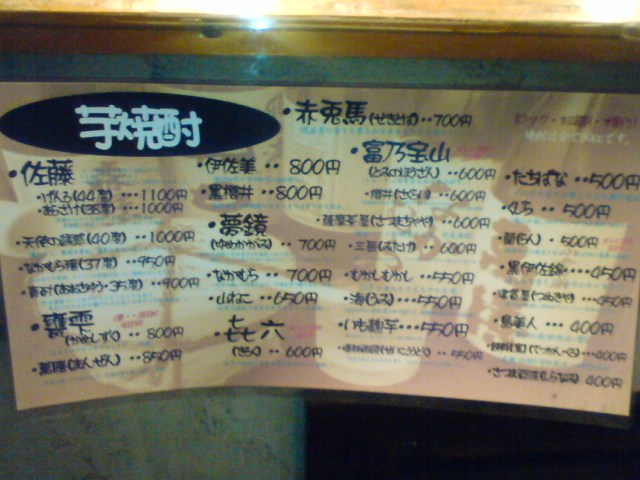 芋焼酎
・赤兎馬(せきとば)・・700円
・佐藤
(44度)・・・1100円
あらざけ(38度)・・・1000円
・天使の誘惑(40度)・・1000円
・なかむら穣(37度)・・950円
(あおちゅう・35度)・・900円
・甕雫
(かめしずく)・・800円
(まんぜん)・・850円
・伊佐美・・800円
・黒櫻井・・800円
・夢鏡
(ゆめかがみ)・・700円
・なかむら・・700円
・山ねこ・・650円
・㐂六
(きろく)・・600円
・富乃宝山
(とみのほうざん)・・600円
・櫻井(さくらい)・・600円
・薩摩茶屋(さつまちゃや)・・600円
・三岳(みたけ)・・600円
・むかしむかし・・550円
・海(うみ)・・550円
・いも麹芋・・550円
・・550円
・たちばな・・500円
・くじら・・500円
・蘭(らん)・500円
・黒伊佐錦・・・450円
・450円
・島美人・・・400円
・・・400円
400円